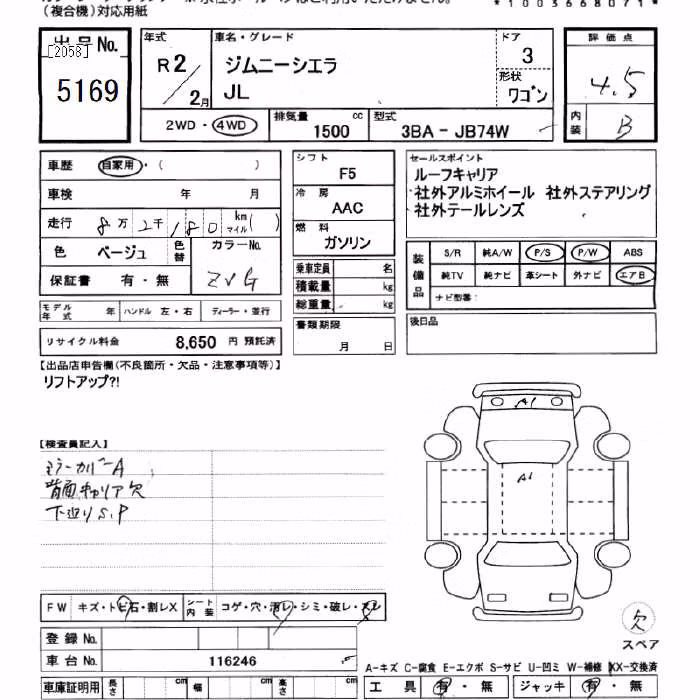 （複合機）対応用紙
*1003668071*
出品No.
[2058]
5169
年式
R2/2月
車名・グレード
ジムニーシエラ
JL
ドア
3
形状
ワゴン
評価点
4.5
内装
B
2WD・4WD
排気量
1500 cc
型式
3BA - JB74W
車歴 自家用・（ ）
車検 年 月
走行 8万2千180 km マイル( )
色 ベージュ 色替
カラーNo.
ZVG
保証書 有・無
モデル年式 年 ハンドル 左・右 ディーラー・並行
リサイクル料金 8,650 円 預託済
シフト
F5
冷房
AAC
燃料
ガソリン
乗車定員 名
積載量 kg
総重量 kg
書類期限
月 日
セールスポイント
ルーフキャリア
社外アルミホイール 社外ステアリング
社外テールレンズ
装備品
S/R 純A/W P/S P/W ABS
純TV 純ナビ 革シート 外ナビ エアB
ナビ型番：
後日品
【出品店申告欄(不良箇所・欠品・注意事項等)】
リフトアップ?!
【検査員記入】
ミラーカバーA
背面キャリア欠
下廻りS.P
A1
A1
FW キズ・トビ石・割レX シート内装 コゲ・穴・汚レ・シミ・破レ・スレ
登録No.
車台No. 116246
車庫証明用 長さ cm 幅 cm 高さ cm
欠
スペア
A-キズ C-腐食 E-エクボ S-サビ U-凹ミ W-補修 XX-交換済
工具 有・無 ジャッキ 有・無